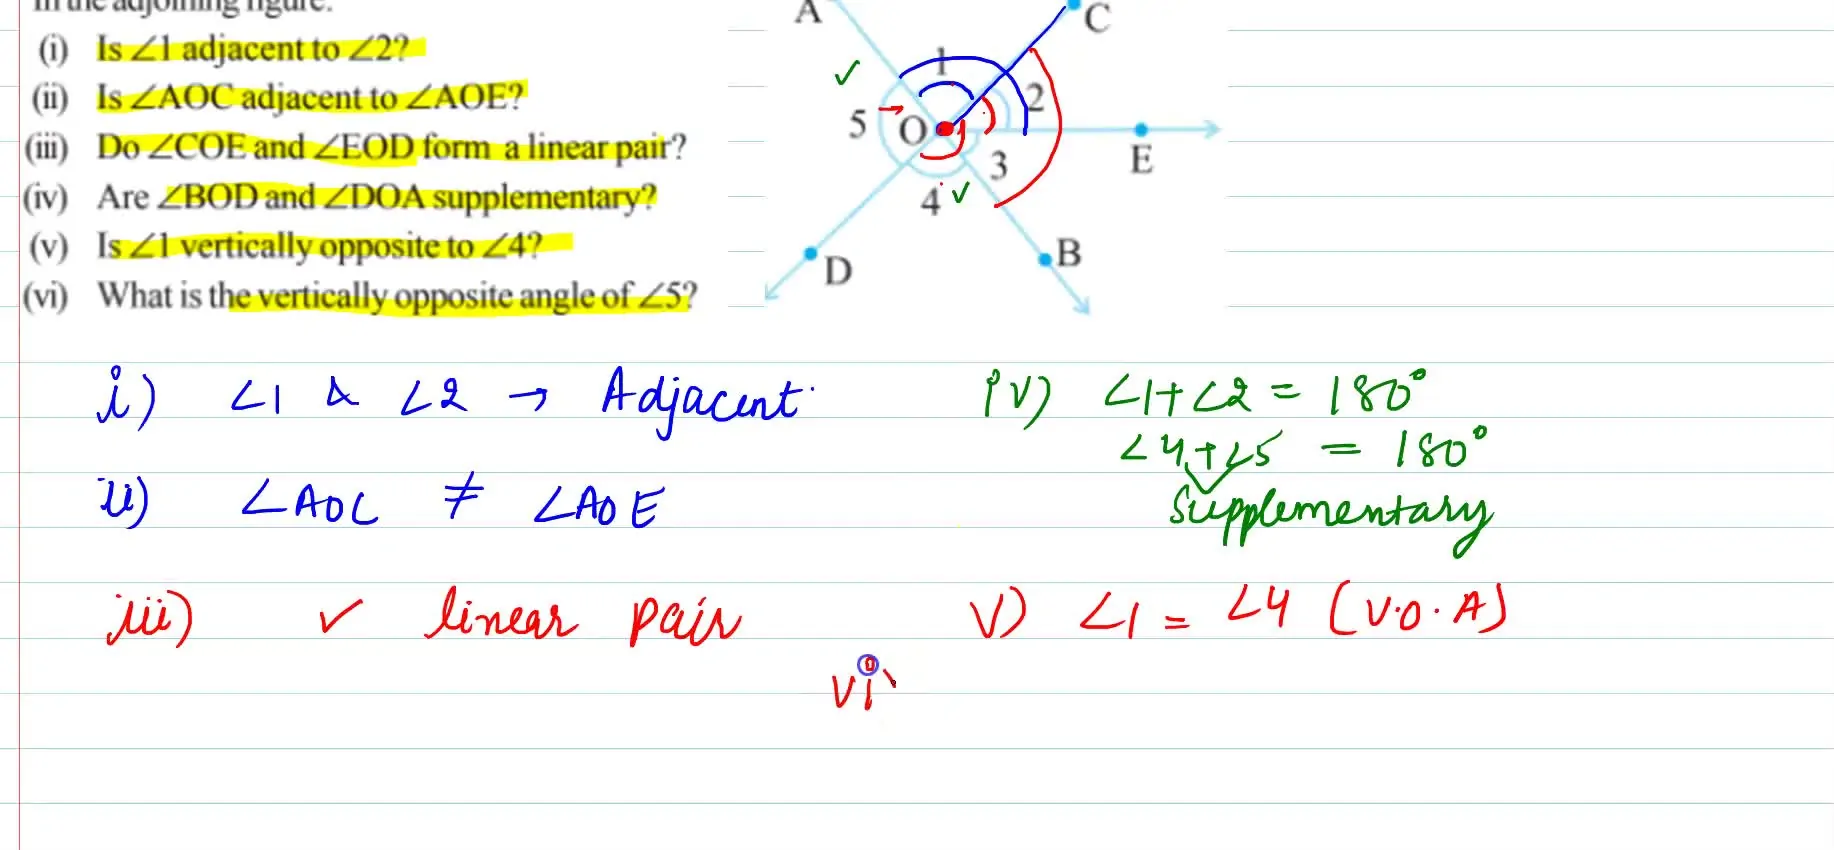 In the adjoining figure:
(i) Is ∠1 adjacent to ∠2?
(ii) Is ∠AOC adjacent to ∠AOE?
(iii) Do ∠COE and ∠EOD form a linear pair?
(iv) Are ∠BOD and ∠DOA supplementary?
(v) Is ∠1 vertically opposite to ∠4?
(vi) What is the vertically opposite angle of ∠5?
A
C
1
2
5
O
E
3
4
B
D
i) ∠1 & ∠2 → Adjacent
ii) ∠AOC ≠ ∠AOE
iii) ✓ linear pair
iv) ∠1+∠2 = 180°
∠4+∠5 = 180°
Supplementary
v) ∠1 = ∠4 (V.O.A)
vi